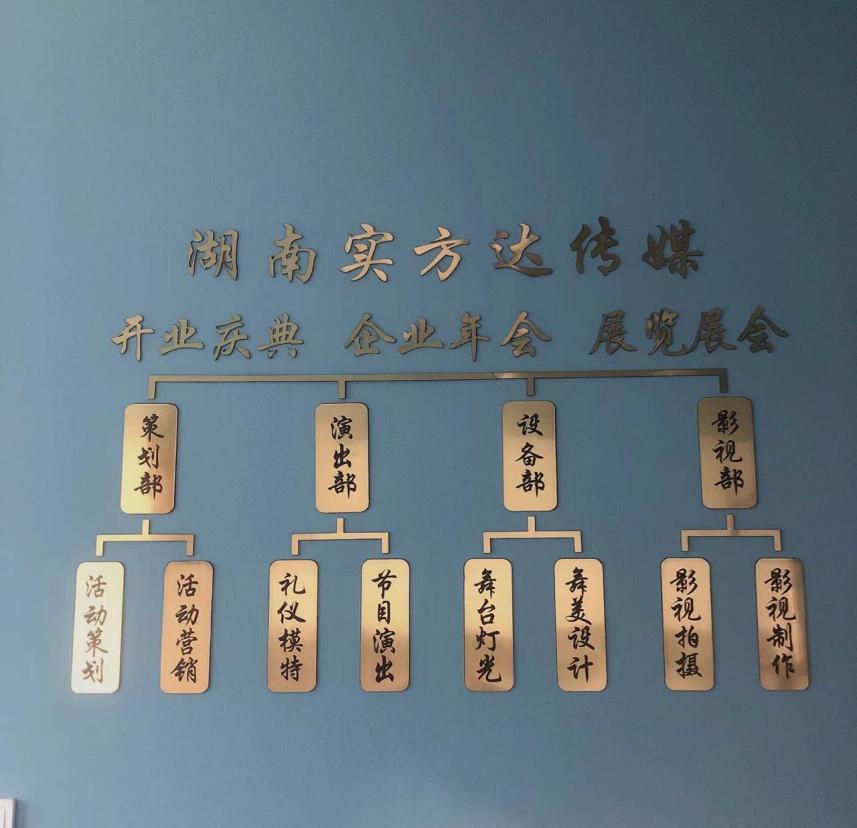 湖南实方达传媒
开业庆典 企业年会 展览展会
策划部
演出部
设备部
影视部
活动策划
活动营销
礼仪模特
节目演出
舞台灯光
舞美设计
影视拍摄
影视制作